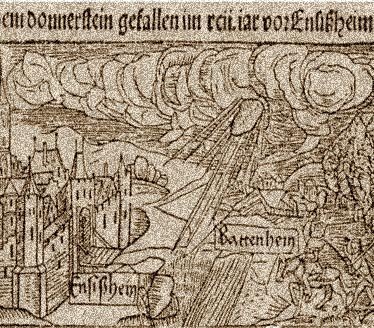 dem donnerstein gefallen im xcii. iar vor Ensißheim
Battenheim
Ensißheim